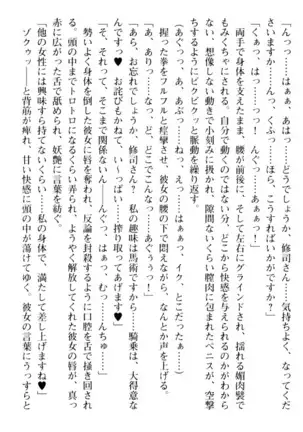 「んっ……はぁっ……どうでしょうか、修司さん……気持ちよく、なってくだ
さいますか……んっ、ふぁっ……ほら、こうすればいかがですか……?」
「くぁっ、はっ……っ! んぐっ……あっ、ぁっ……!」
両手で身体を支えたまま、腰が前後に、そして左右にグラインドされ、揺れる媚肉襞で
もみくちゃにされる。自分で動くのではない分、どこから快感を与えられるのかがわから
ない、想像しない動きで小刻みに扱かれ、隙間ないくらい膣肉に包まれたペニスが、空撃
ちするようにビクビクっと脈動を繰り返す。
(あぐっっ、あ、ああぁっ……あぶ、あぶ……っ、イク、とこだったぁ……)
握った拳をフルフルと痙攣させ、彼女の腰の下で悶えながら、なんとか声を上げる。
「あ、あ、ありっ……なっ、ど、どこでこんなっ……あぐぅぅっ!」
「あら、お忘れでしょうか、修司さん? 私の趣味は馬術ですから……騎乗は、大得意な
んですっ♥ お詫びもかねて、い～っぱい……搾り取ってあげます♥」
「んぐっっ、そ、そこまで関係ないん――んぐっ、はぁっ、むっ……んちゅっ……」
勢いよく身体を倒した彼女に唇を奪われ、反論を封殺するように口腔を舌で掻き回され
る。頭の中までトロトロになるくらい弄られ、ようやく解放してくれた彼女の唇が、真っ
赤に広がった舌で舐められ、妖艶に言葉を紡ぐ。
「他の女性には興味すら持てないくらい……私の身体で、満たして差し上げますね♥」
ゾクゥッ――と背筋が痺れ、甘い快感に頭の中が蕩けてゆく。彼女の言葉にうっすらと